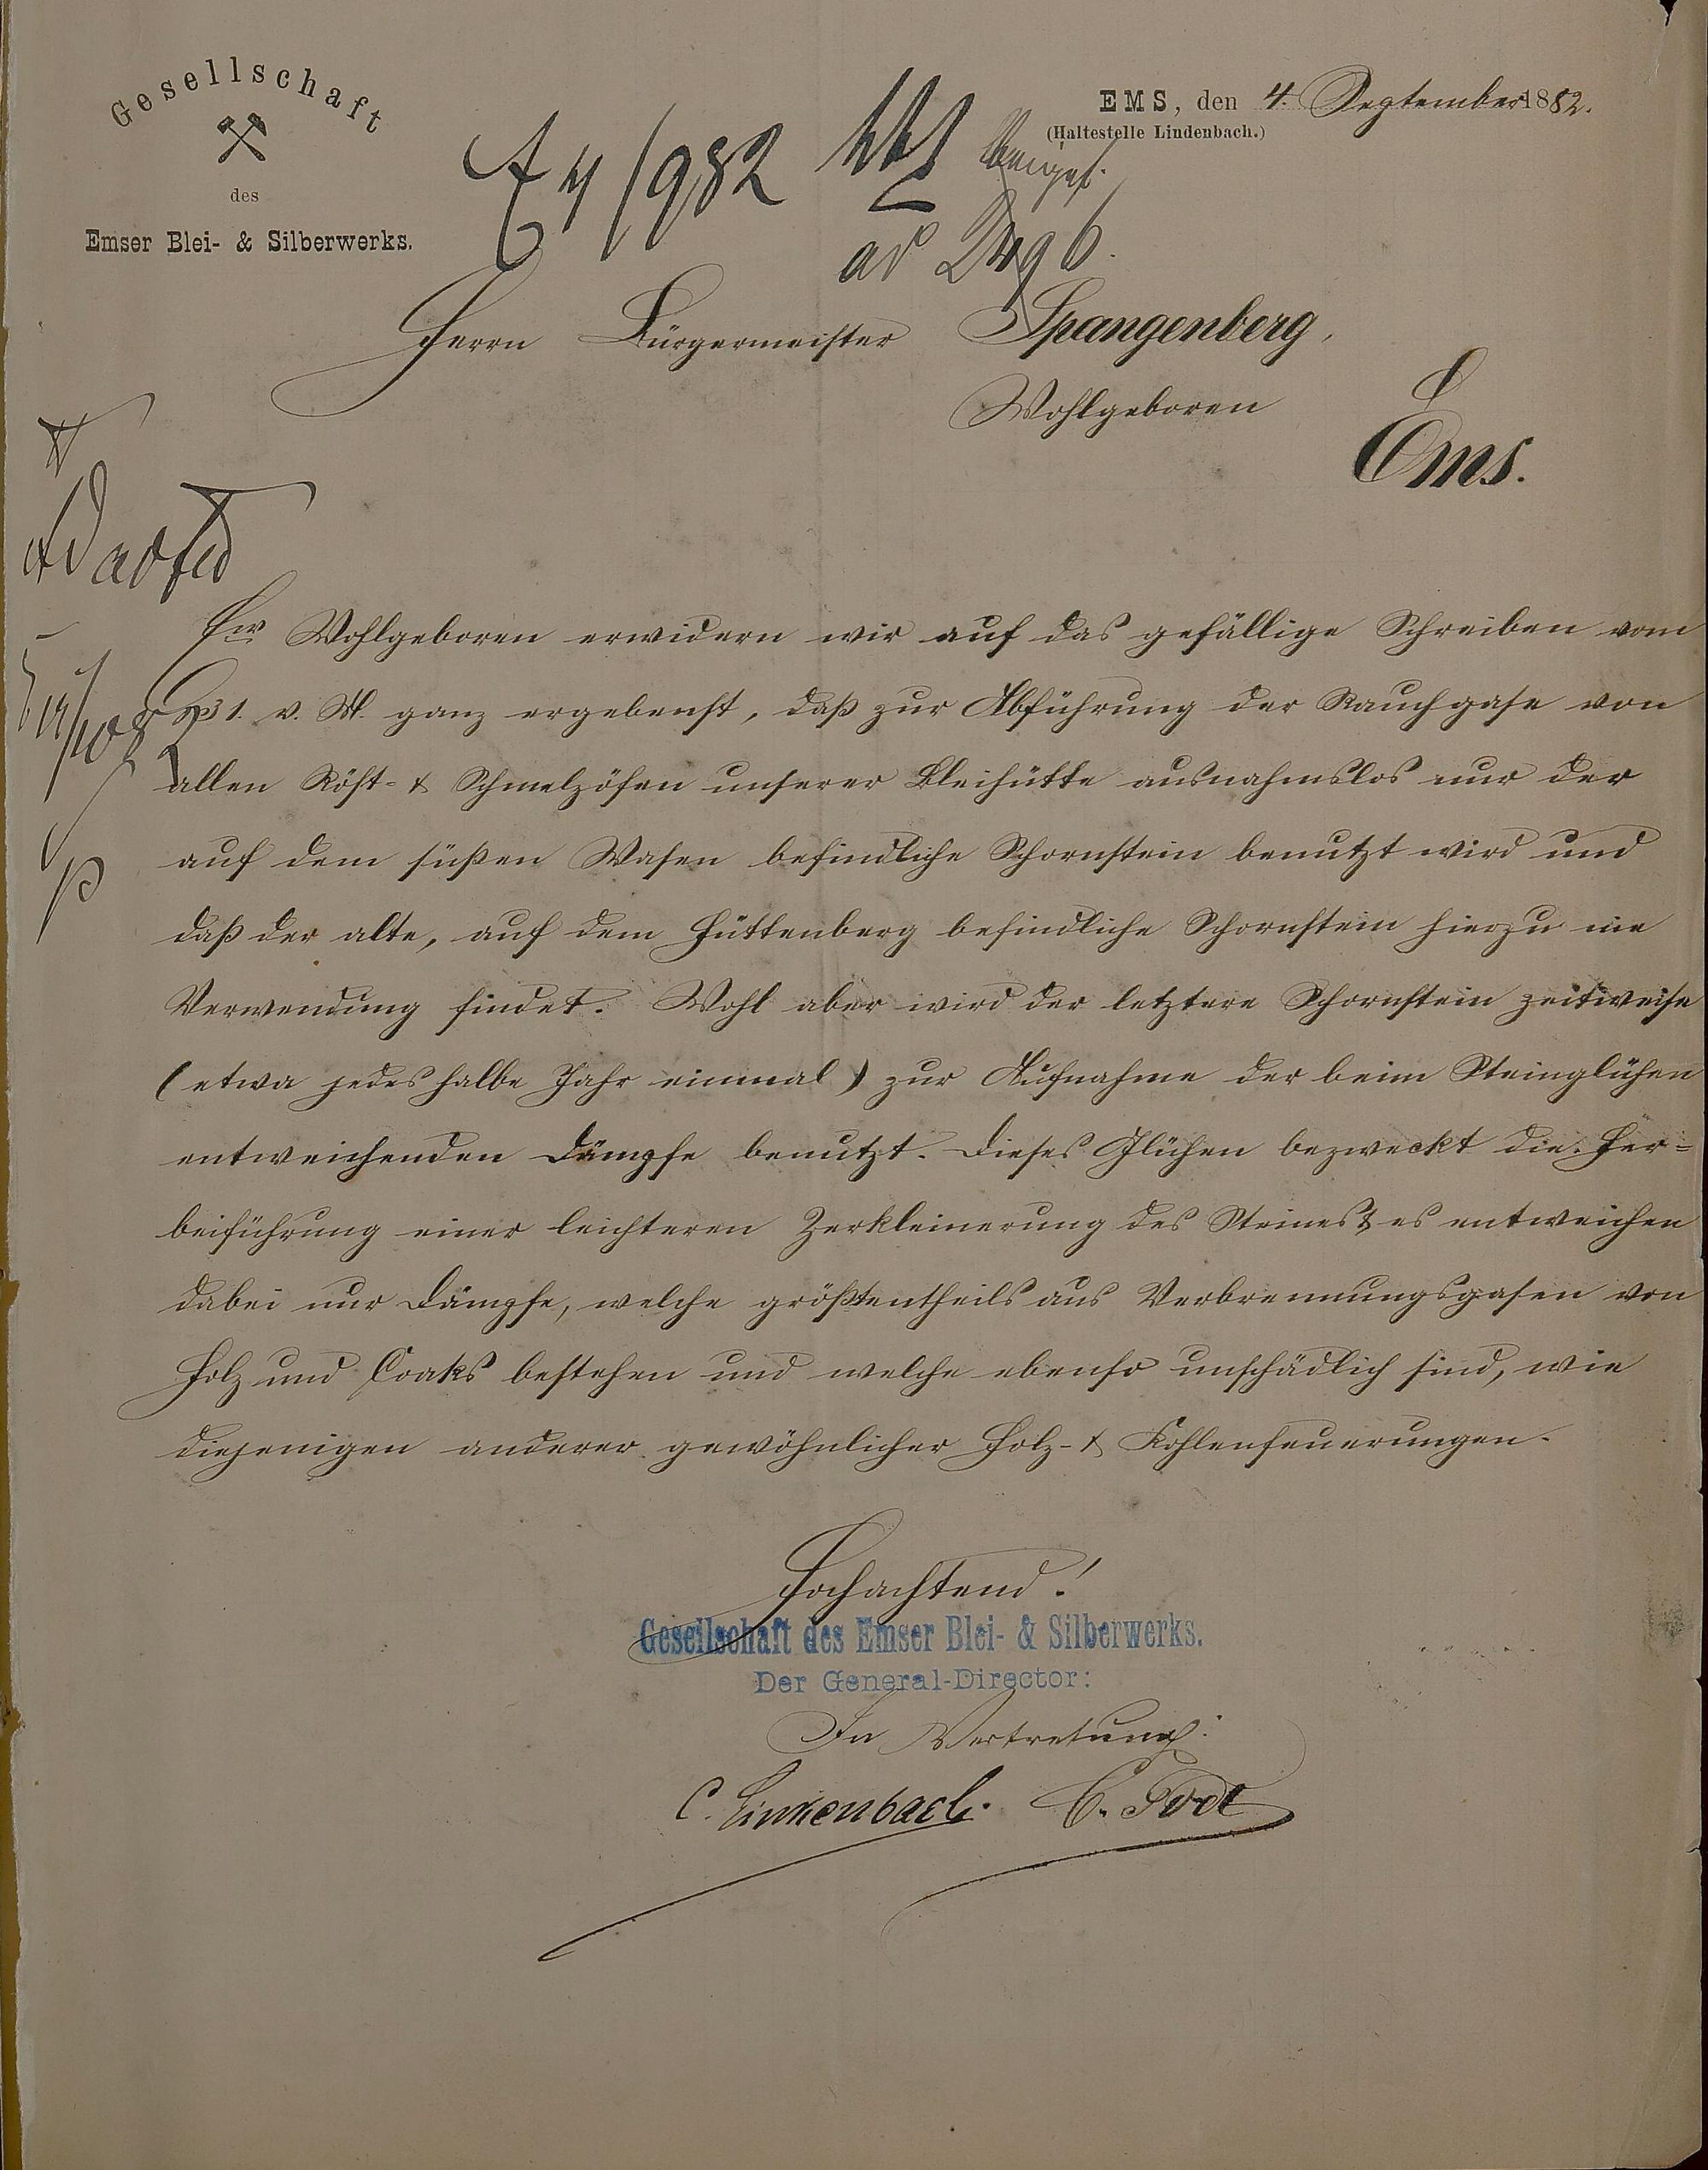 Gesellschaft
des
Emser Blei- & Silberwerks.
EMS, den 4. September 1882.
(Haltestelle Lindenbach.)
4/982
ad
Herrn Bürgermeister Spangenberg,
Wohlgeboren
Ems.
Ew Wohlgeboren erwidern wir auf das gefällige Schreiben vom
31. v. M. ganz ergebenst, daß zur Abführung der Rauchgase von
allen Röst- & Schmelzöfen unserer Bleihütte ausnahmslos nur der
auf dem süßen Wasen befindliche Schornstein benutzt wird und
daß der alte, auf dem Hüttenberg befindliche Schornstein hierzu nie
Verwendung findet. Wohl aber wird der letztere Schornstein zeitweise
(etwa jedes halbe Jahr einmal) zur Aufnahme der beim Steinglühen
entweichenden Dämpfe benutzt. Dieses Glühen bezweckt die Her=
beiführung einer leichteren Zerkleinerung des Steines & es entweichen
dabei nur Dämpfe, welche größtentheils aus Verbrennungsgasen von
Holz und Coaks bestehen und welche ebenso unschädlich sind, wie
diejenigen anderer gewöhnlicher Holz- & Kohlenfeuerungen.
Hochachtend!
Gesellschaft des Emser Blei- & Silberwerks.
Der General-Director:
In Vertretung:
C. Linkenbach.